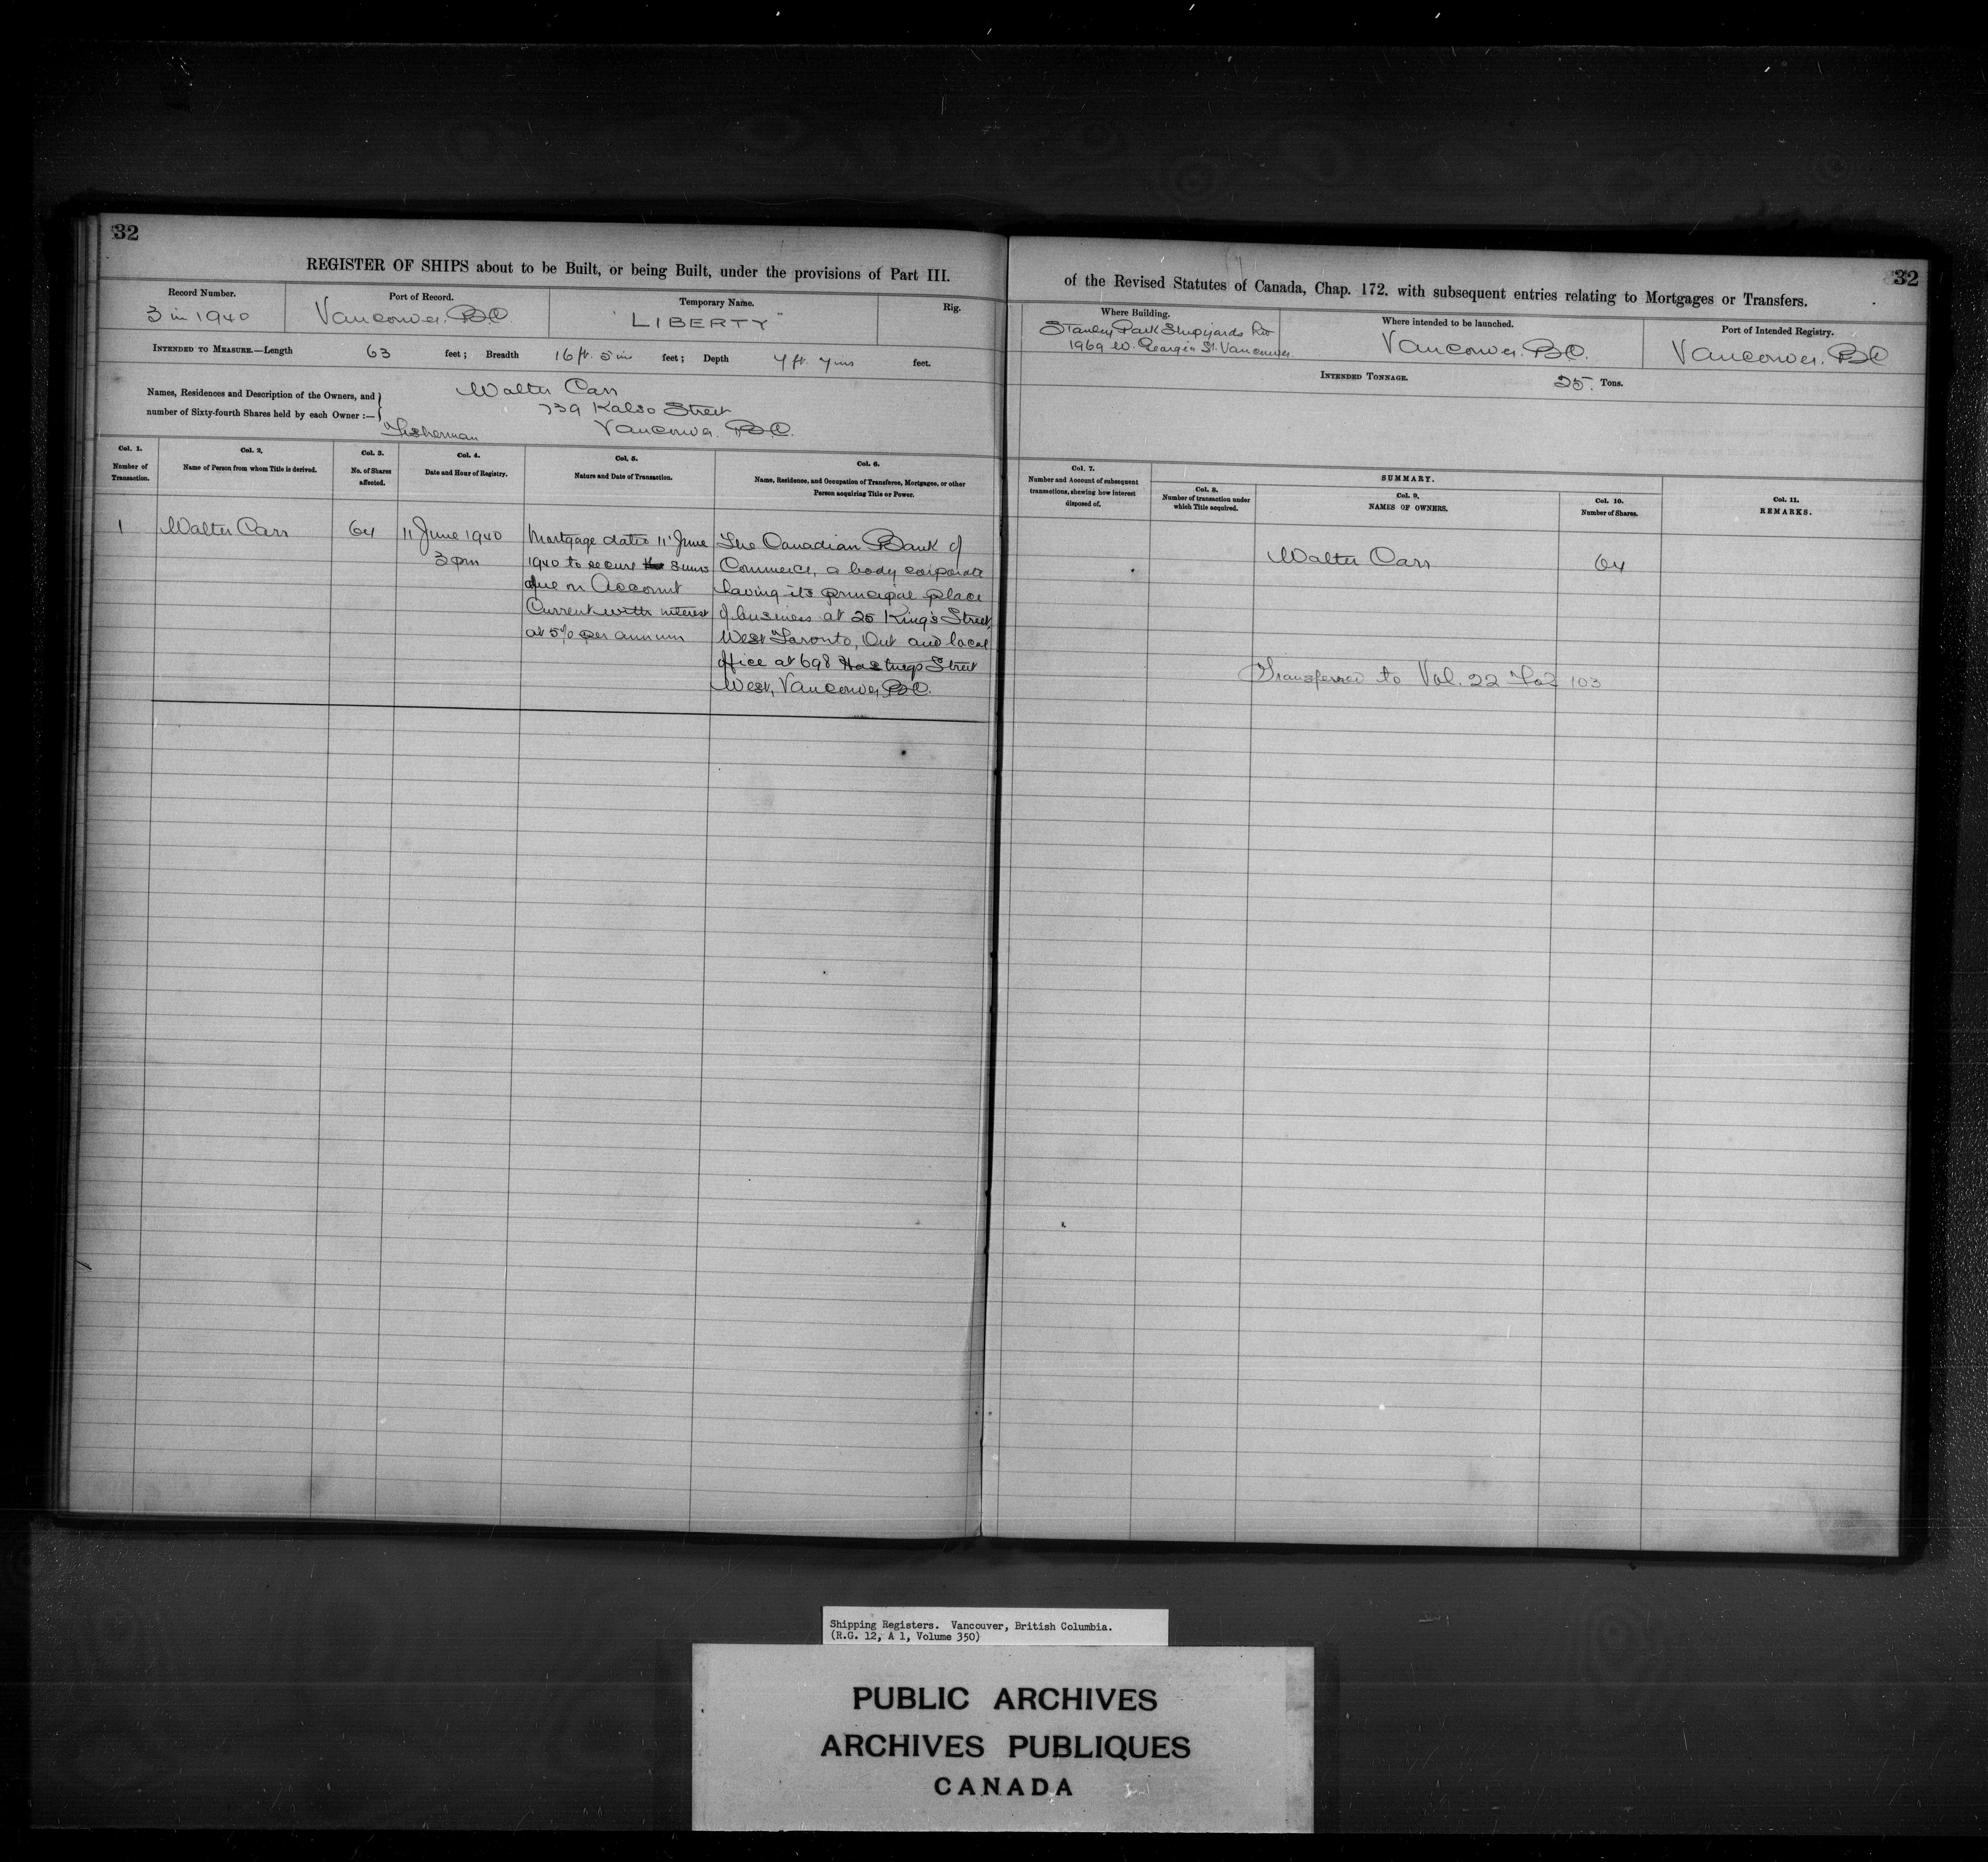 32
REGISTER OF SHIPS about to be Built, or being Built, under the provisions of Part III.
Record Number.
3 in 1940
Port of Record.
Vancouver. BC
Temporary Name.
"LIBERTY"
Rig.
INTENDED TO MEASURE.—Length 63 feet; Breadth 16 ft. 5 in feet; Depth 7 ft. 7 ins feet.
Names, Residences and Description of the Owners, and
number of Sixty-fourth Shares held by each Owner :—
Walter Carr
739 Kalso Street
Fisherman Vancouver. B.C.
Col. 1.
Number of
Transaction.
Col. 2.
Name of Person from whom Title is derived.
Col. 3.
No. of Shares
affected.
Col. 4.
Date and Hour of Registry.
Col. 5.
Nature and Date of Transaction.
Col. 6.
Name, Residence, and Occupation of Transferee, Mortgagee, or other
Person acquiring Title or Power.
1
Walter Carr
64
11 June 1940
3 pm
Mortgage dated 11 June
1940 to secure sums
due on Account
Current with interest
at 5% per annum
The Canadian Bank of
Commerce, a body corporate
having its principal place
of business at 25 King's Street,
West Toronto, Ont and local
office at 698 Hastings Street
West, Vancouver, BC.
32
of the Revised Statutes of Canada, Chap. 172. with subsequent entries relating to Mortgages or Transfers.
Where Building.
Stanley Park Shipyards Ltd
1969 W. Georgia St. Vancouver
Where intended to be launched.
Vancouver. BC.
Port of Intended Registry.
Vancouver. BC
INTENDED TONNAGE. 25. Tons.
Col. 7.
Number and Account of subsequent
transactions, shewing how interest
disposed of.
SUMMARY.
Col. 8.
Number of transaction under
which Title acquired.
Col. 9.
NAMES OF OWNERS.
Col. 10.
Number of Shares.
Col. 11.
REMARKS.
Walter Carr
64
Transferred to Vol. 22 Fol 103
Shipping Registers. Vancouver, British Columbia.
(R.G. 12, A 1, Volume 350)
PUBLIC ARCHIVES
ARCHIVES PUBLIQUES
CANADA